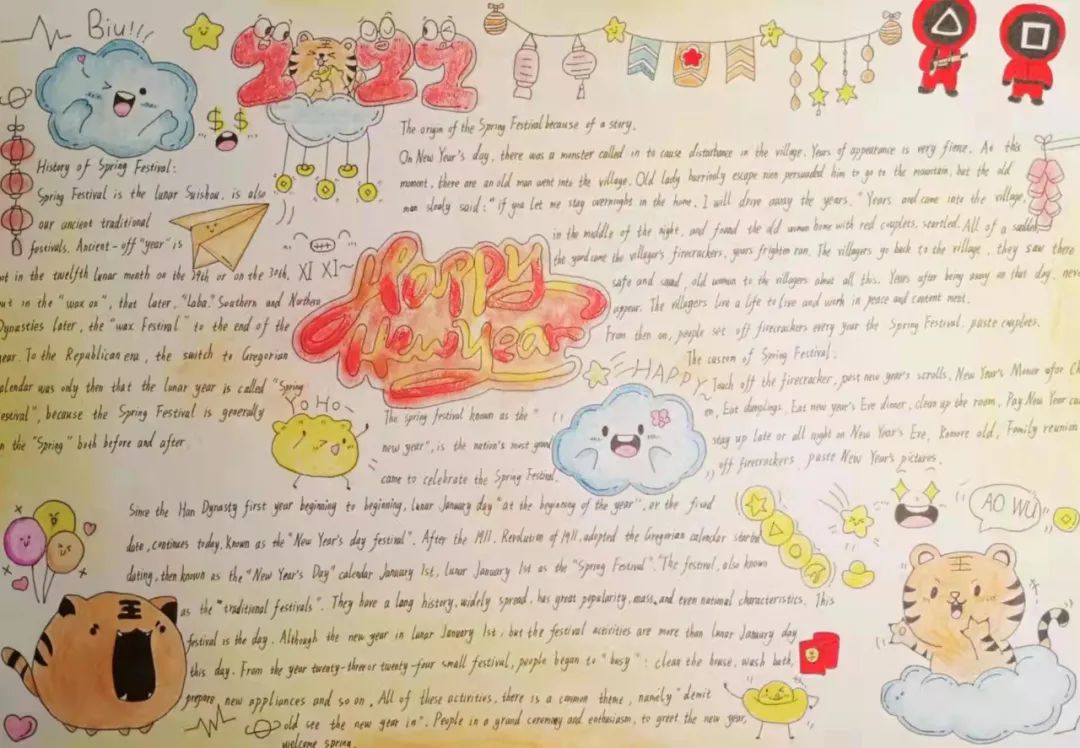 Biu!!!
2022
$ $
History of Spring Festival:
Spring Festival is the lunar Suishou, is also
our ancient traditional
festivals. Ancient-off "year" is
not in the twelfth lunar month on the 29th or on the 30th,
but in the "wax on", that later, "Laba." Southern and Northern
Dynasties later, the "wax Festival" to the end of the
year. To the Republican era, the switch to Gregorian
calendar was only then that the lunar year is called "Spring
Festival", because the Spring Festival is generally
in the "Spring" both before and after.
XI XI~
Happy
New Year
YoHo~
The origin of the Spring Festival because of a story.
On New Year's day, there was a monster called in to cause disturbance in the village. Years of appearance is very fierce. At this
moment, there are an old man went into the village. Old lady hurriedly escape nien persuaded him to go to the mountain, but the old
man slowly said: "if you let me stay overnight in the home, I will drive away the years." Years and came into the village,
in the middle of the night, and found the old woman home with red couplets, startled. All of a sudden
the yard came the villager's firecrackers, years frighten ran. The villagers go back to the village, they saw there
safe and sound, old woman to the villagers about all this. Years after being away on that day, never
appear. The villagers live a life to live and work in peace and content ment.
From then on, people set off firecrackers every year the Spring Festival, paste couplets.
HAPPY~
The custom of Spring Festival:
Touch off the firecracker, post new year's scrolls, New Year's Money for Ch
en, Eat dumplings, Eat new year's Eve dinner, clean up the room, Pay New Year cal
stay up late or all night on New Year's Eve, Romore old, Family reunion
off firecrackers, paste New Year's pictures.
The spring festival known as the "
new year", is the nation's most grand
came to celebrate the Spring Festival.
AO WU
Since the Han Dynasty first year beginning to beginning, lunar January day "at the beginning of the year", or the fixed
date, continues today. Known as the "New Year's day festival". After the 1911, Revolution of 1911, adopted the Gregorian calendar started
dating, then known as the "New Year's Day" calendar January 1st, lunar January 1st as the "Spring Festival". The festival, also known
as the "traditional festivals". They have a long history, widely spread, has great popularity, mass, and even national characteristics. This
festival is the day. Although the new year in lunar January 1st, but the festival activities are more than lunar January day
this day. From the year twenty-three or twenty-four small festival, people began to "busy": clean the house, wash bath,
prepare new appliances and so on. All of these activities, there is a common theme, namely "demit
old see the new year in". People in a grand ceremony and enthusiasm, to greet the new year,
welcome spring.
王
王